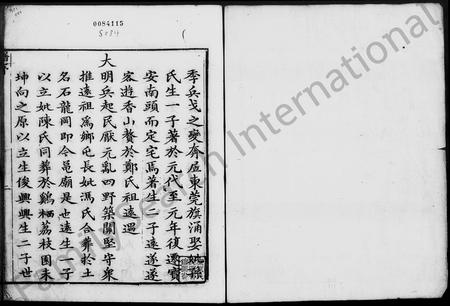 0084115
5084
季兵戈之變奔居東莞旗涌娶姚孫
氏生一子著於元代至元年復遷寶
安南頭而定宅焉著生一子遠遂
客遊香山贅於鄭氏祖遠遇
大
明兵起民厭元亂四野築關堅守衆
推遠祖爲鄉屯長妣馮氏合葬於土
名石龍岡即令邑廟是也遠生一子
以立妣陳氏同葬於鷄栖荔枝園未
坤向之原以立生俊興興生二子世
FamilySearch International